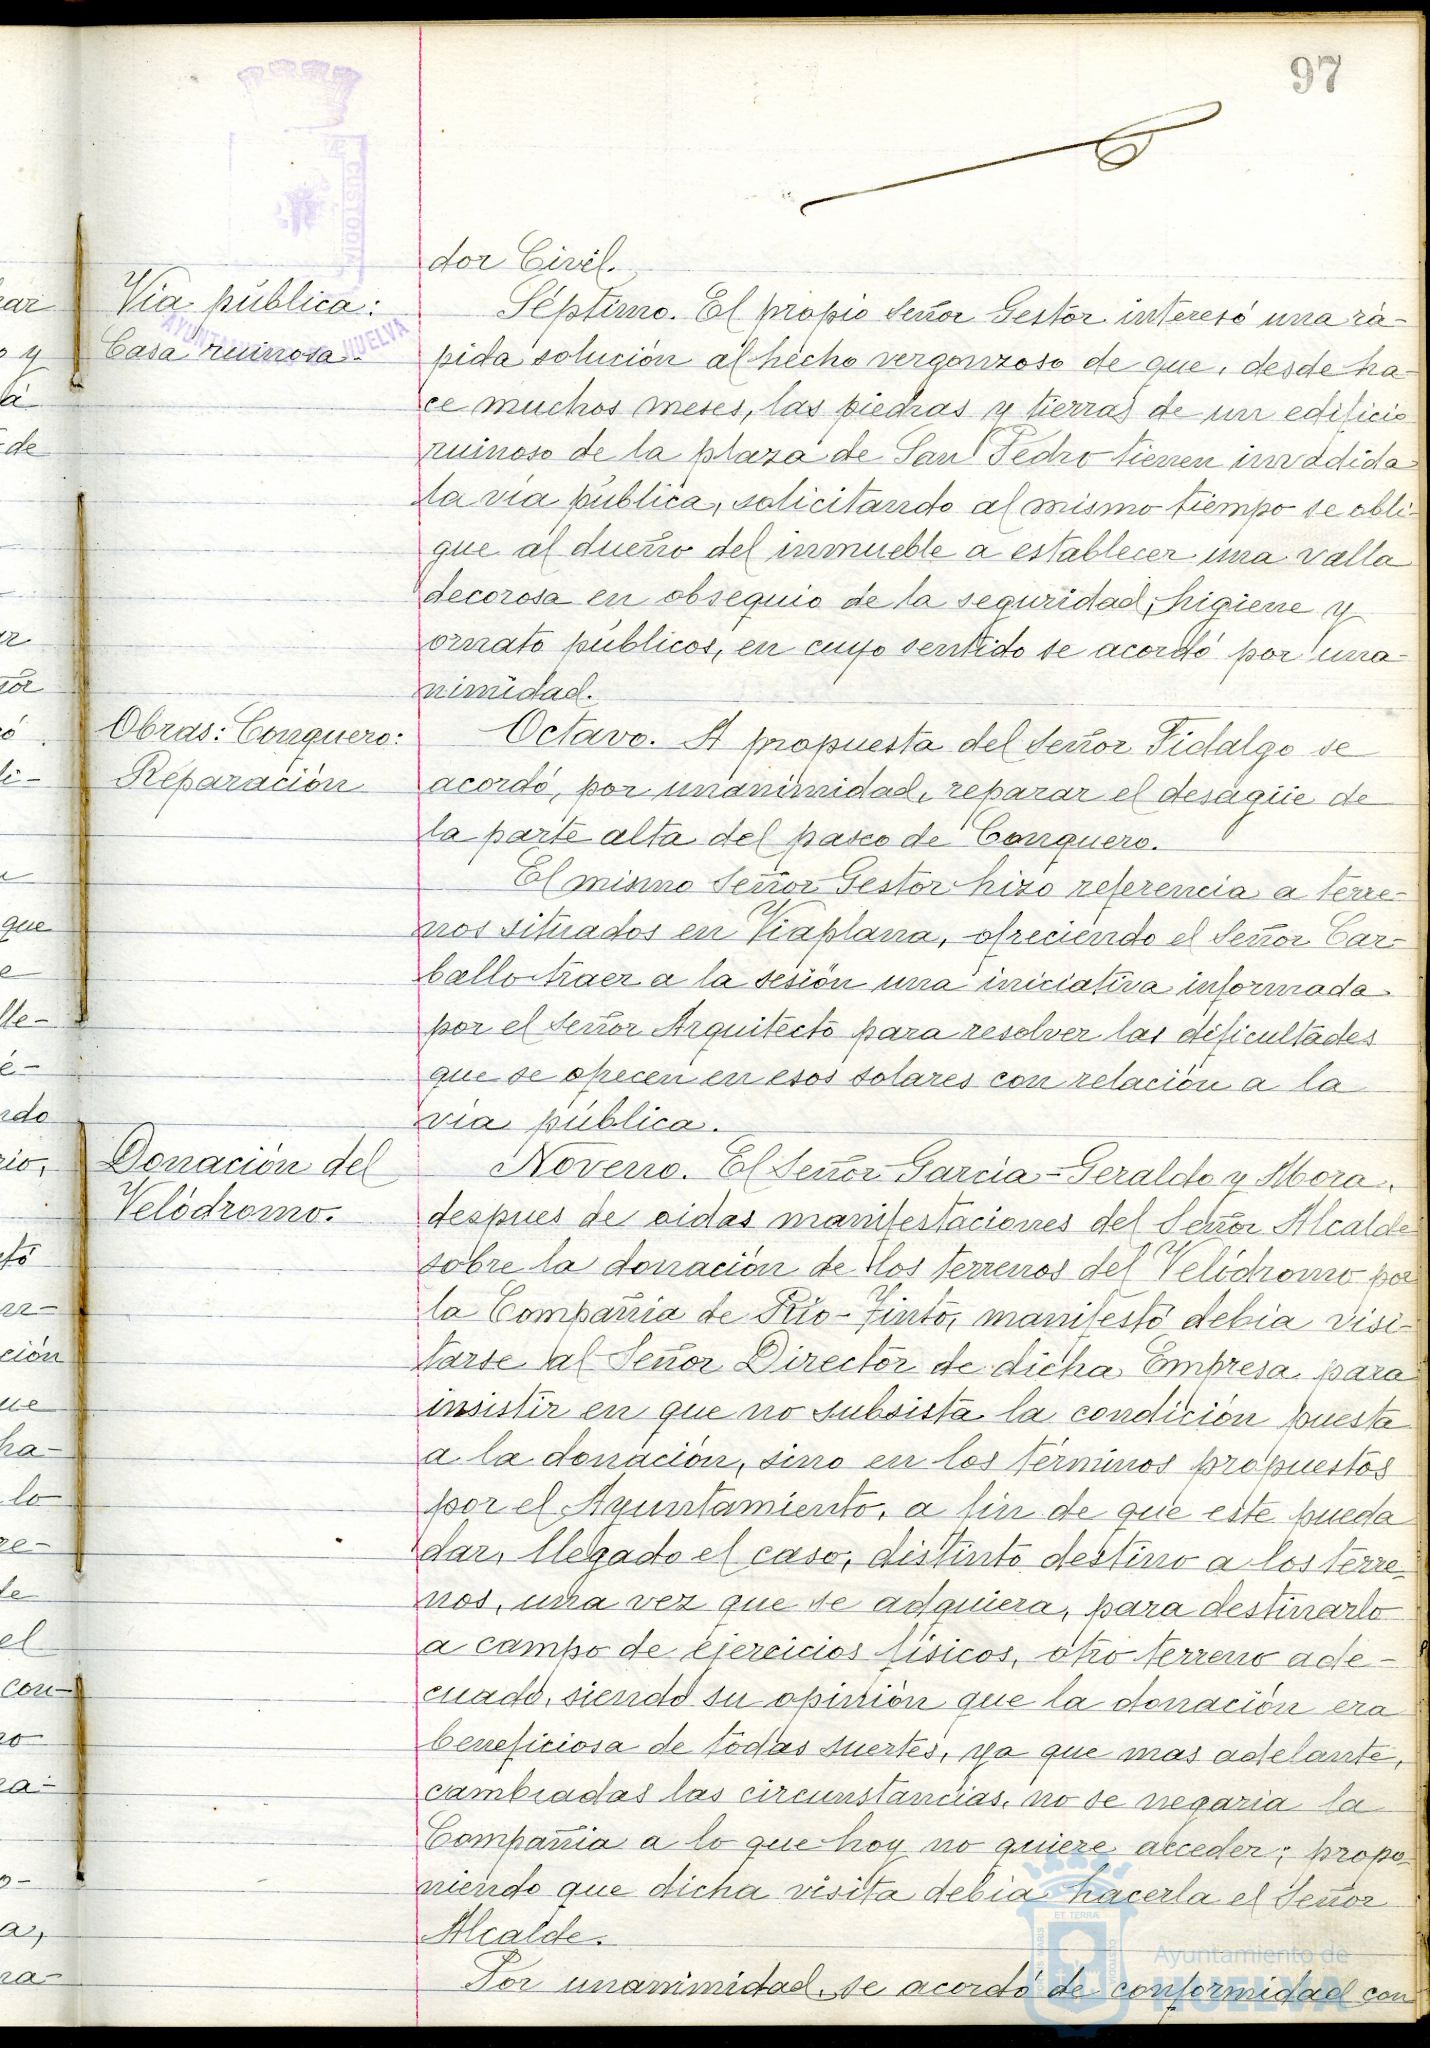 97
dor Civil.
Vía pública:
Casa ruinosa.
Séptimo. El propio señor Gestor interesó una rá-
pida solución al hecho vergonzoso de que, desde ha-
ce muchos meses, las piedras y tierras de un edificio
ruinoso de la plaza de San Pedro tienen invadida
la vía pública, solicitando al mismo tiempo se obli-
gue al dueño del inmueble a establecer una valla
decorosa en obsequio de la seguridad, higiene y
ornato públicos, en cuyo sentido se acordó por una-
nimidad.
Obras: Conquero:
Reparación
Octavo. A propuesta del señor Fidalgo se
acordó, por unanimidad, reparar el desagüe de
la parte alta del paseo de Conquero.
El mismo Señor Gestor hizo referencia a terre-
nos situados en Viaplana, ofreciendo el Señor Car-
ballo traer a la sesión una iniciativa informada
por el señor Arquitecto para resolver las dificultades
que se ofrecen en esos solares con relación a la
vía pública.
Donación del
Velódromo.
Noveno. El Señor García-Geraldo y Mora,
despues de oidas manifestaciones del Señor Alcalde
sobre la donación de los terrenos del Velódromo por
la Compañia de Río-Tinto, manifestó debía visi-
tarse al Señor Director de dicha Empresa para
insistir en que no subsista la condición puesta
a la donación, sino en los términos propuestos
por el Ayuntamiento, a fin de que este pueda
dar, llegado el caso, distinto destino a los terre-
nos, una vez que se adquiera, para destinarlo
a campo de ejercicios físicos, otro terreno ade-
cuado, siendo su opinión que la donación era
beneficiosa de todas suertes, ya que mas adelante,
cambiadas las circunstancias, no se negaria la
Compañia a lo que hoy no quiere acceder; propo-
niendo que dicha visita debía hacerla el Señor
Alcalde.
Por unanimidad, se acordó de conformidad con
Ayuntamiento de
HUELVA